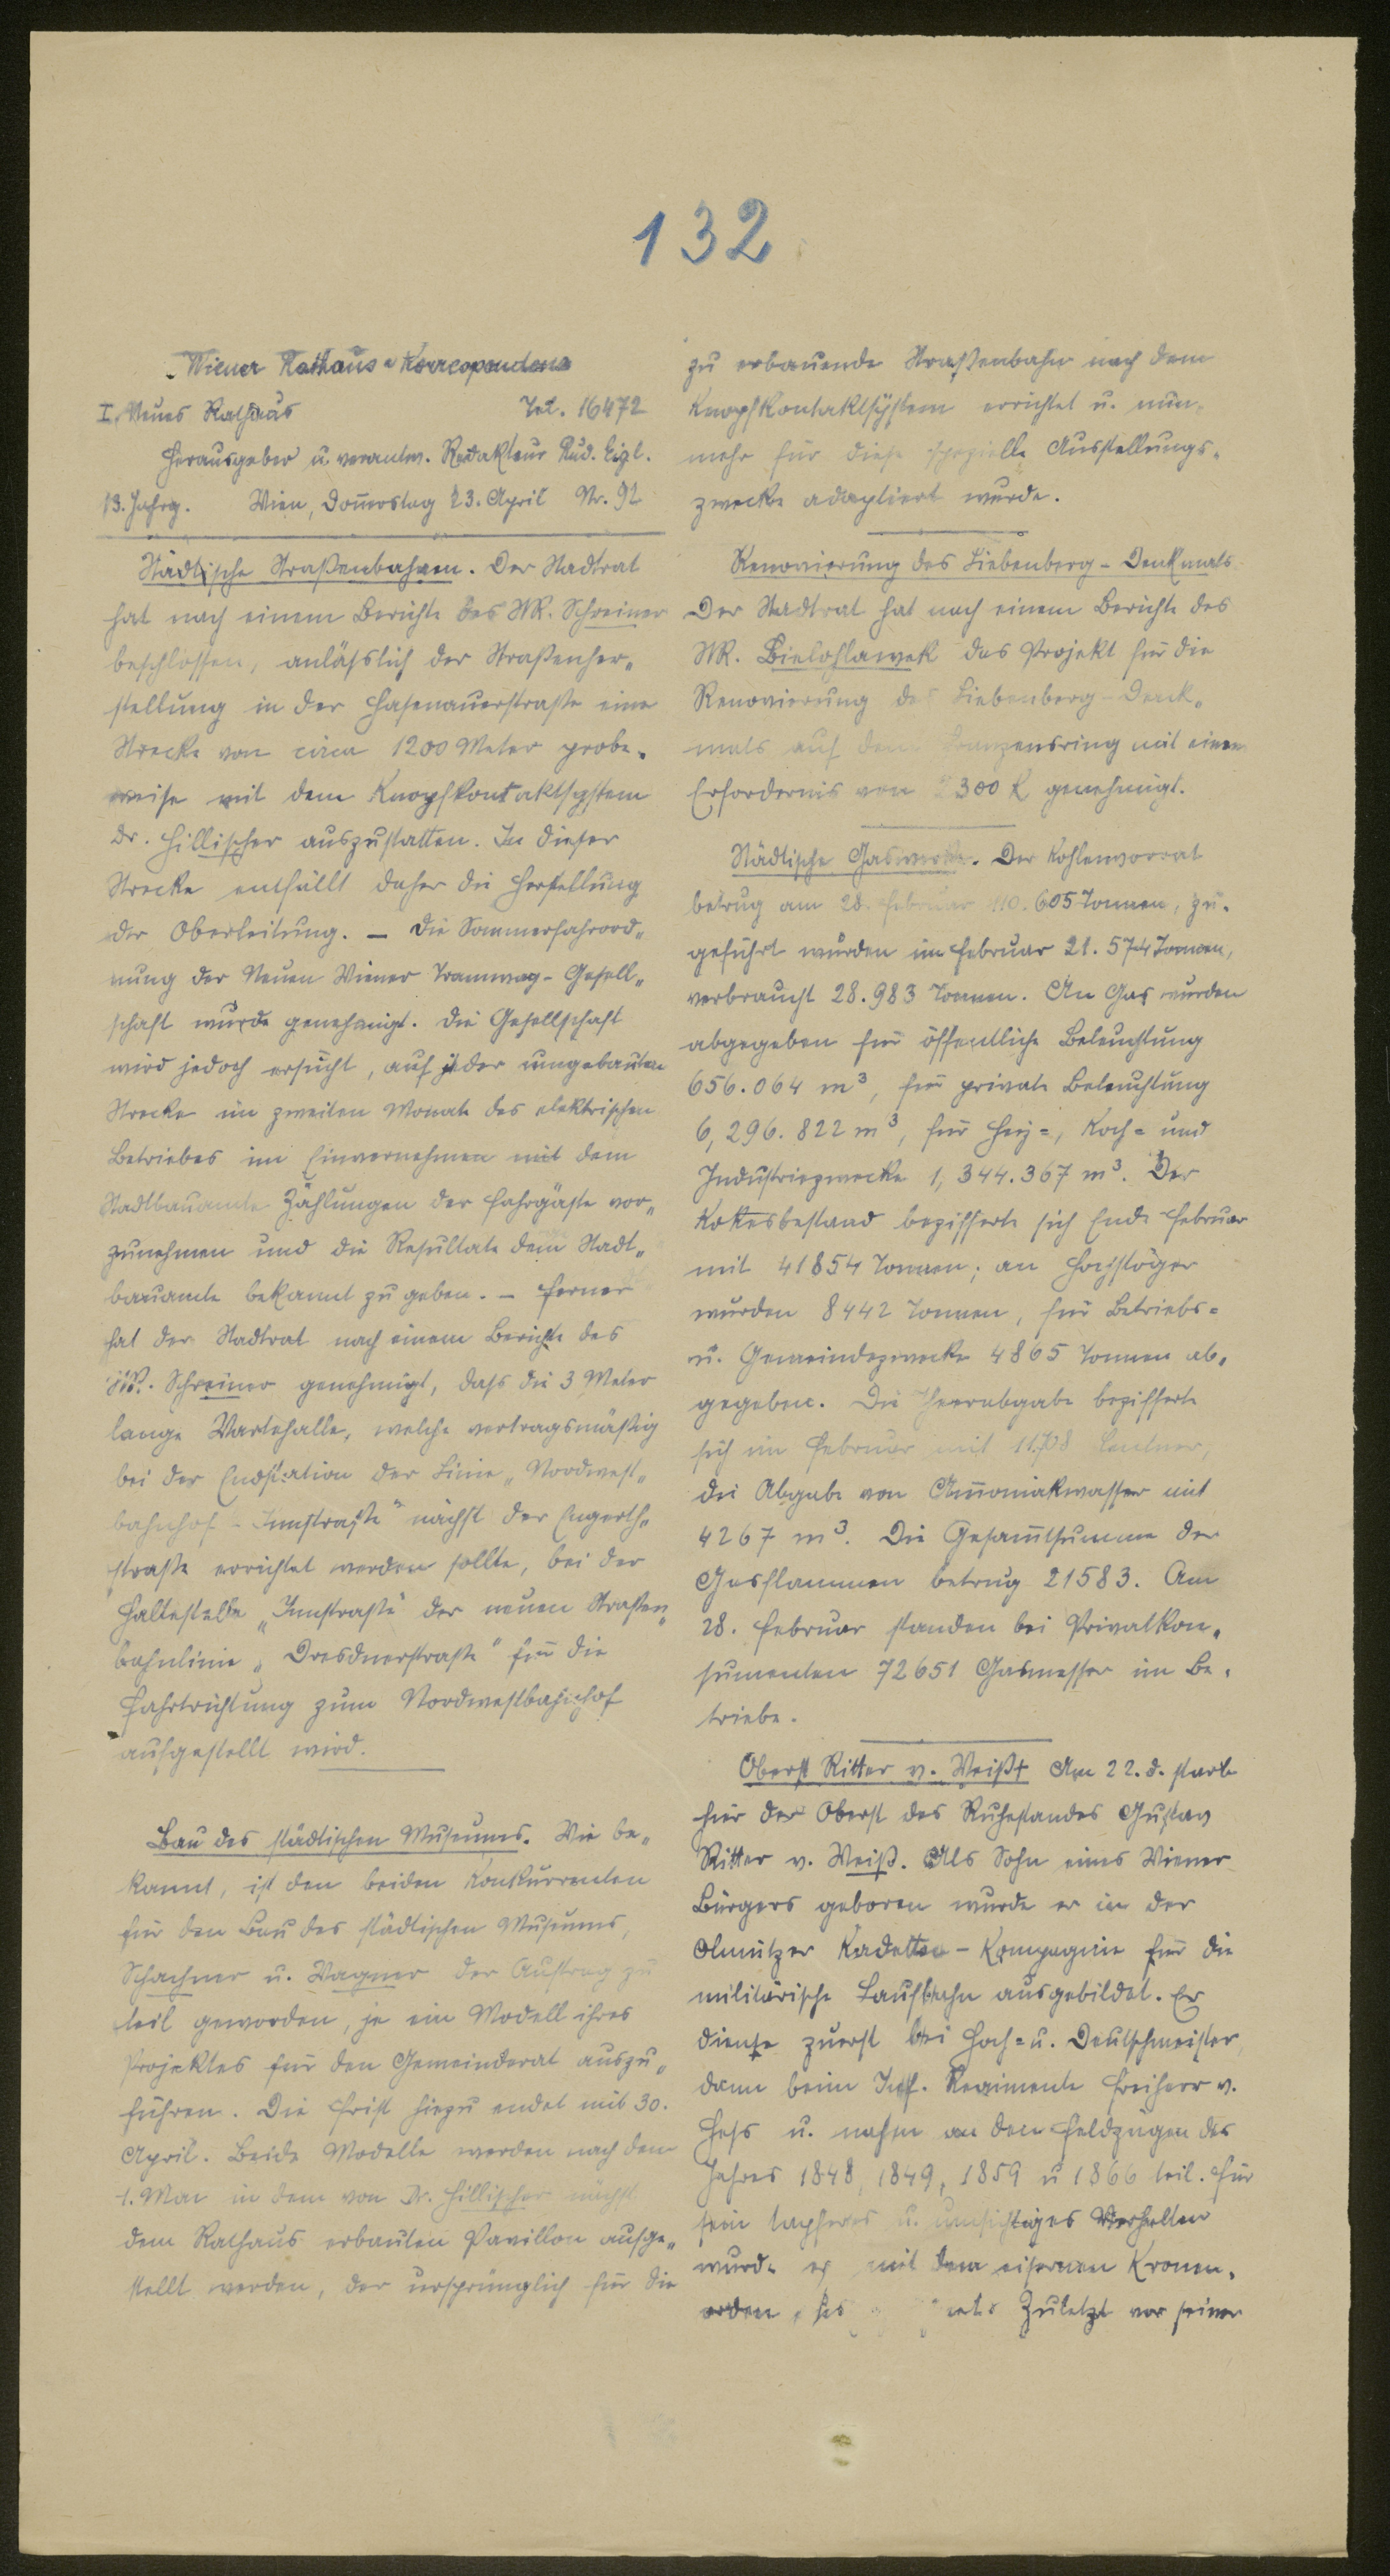 132
Wiener Rathaus-Korrespondenz
I. Neues Rathaus Tel. 16472
Herausgeber u. verantw. Redakteur Rud. Eigl.
13. Jahrg. Wien, Donnerstag 23. April Nr. 92
Städtische Straßenbahnen. Der Stadtrat
hat nach einem Berichte des StR. Schreiner
beschlossen, anläßlich der Straßenher-
stellung in der Hasenauerstraße eine
Strecke von circa 1200 Meter probe-
weise mit dem Knopfkontaktsystem
Dr. Hillischer auszustatten. In dieser
Strecke entfällt daher die Herstellung
der Oberleitung. – Die Sommerfahrord-
nung der Neuen Wiener Tramway-Gesell-
schaft wurde genehmigt. Die Gesellschaft
wird jedoch ersucht, auf jeder umgebauten
Strecke im zweiten Monate des elektrischen
Betriebes im Einvernehmen mit dem
Stadtbauamte Zählungen der Fahrgäste vor-
zunehmen und die Resultate dem Stadt-
bauamte bekannt zu geben. – Ferner
hat der Stadtrat nach einem Berichte des
StR. Schreiner genehmigt, daß die 3 Meter
lange Wartehalle, welche vertragsmäßig
bei der Endstation der Linie „Nordwest-
bahnhof – Innstraße" nächst der Engerth-
straße errichtet werden sollte, bei der
Haltestelle „Innstraße" der neuen Straßen-
bahnlinie „Dresdnerstraße" für die
Fahrtrichtung zum Nordwestbahnhof
aufgestellt wird.
Bau des städtischen Museums. Wie be-
kannt, ist den beiden Konkurrenten
für den Bau des städtischen Museums,
Schachner u. Wagner der Auftrag zu
teil geworden, je ein Modell ihres
Projektes für den Gemeinderat auszu-
führen. Die Frist hiezu endet mit 30.
April. Beide Modelle werden nach dem
1. Mai in dem von Dr. Hillischer nächst
dem Rathaus erbauten Pavillon aufge-
stellt werden, der ursprünglich für die
zu erbauende Straßenbahn nach dem
Knopfkontaktsystem errichtet u. nun-
mehr für diese spezielle Ausstellungs-
zwecke adaptiert wurde.
Renovierung des Liebenberg-Denkmals.
Der Stadtrat hat nach einem Berichte des
StR. Bielohlawek das Projekt für die
Renovierung des Liebenberg-Denk-
mals auf dem Franzensring mit einem
Erfordernis von 2300 K genehmigt.
Städtische Gaswerke. Der Kohlenvorrat
betrug am 28. Februar 110.605 Tonnen, zu-
geführt wurden im Februar 21.574 Tonnen,
verbraucht 28.983 Tonnen. An Gas wurden
abgegeben für öffentliche Beleuchtung
656.064 m³, für private Beleuchtung
6,296.822 m³, für Heiz-, Koch- und
Industriezwecke 1,344.367 m³. Der
Kokesbestand bezifferte sich Ende Februar
mit 41854 Tonnen; an
wurden 8442 Tonnen, für Betriebs-
u. Gemeindezwecke 4865 Tonnen ab-
gegeben. Die Teerabgabe bezifferte
sich im Februar mit 11708 Centner,
die Abgabe von Ammoniakwasser mit
4267 m³. Die Gesamtsumme der
Gasflammen betrug 21583. Am
28. Februar standen bei Privatkon-
sumenten 72651 Gasmesser im Be-
triebe.
Oberst Ritter v. Weiß† Am 22. d. starb
hier der Oberst des Ruhestandes Gustav
Ritter v. Weiß. Als Sohn eines Wiener
Bürgers geboren wurde er in der
Olmützer Kadetten-Kompagnie für die
militärische Laufbahn ausgebildet. Er
diente zuerst bei Hoch- u. Deutschmeister,
dann beim Inf. Regimente Freiherr v.
Heß u. nahm an den Feldzügen des
Jahres 1848, 1849, 1859 u 1866 teil. Für
sein tapferes u. umsichtiges Verhalten
wurde er mit dem eisernen Kronen-
orden Zuletzt vor seiner